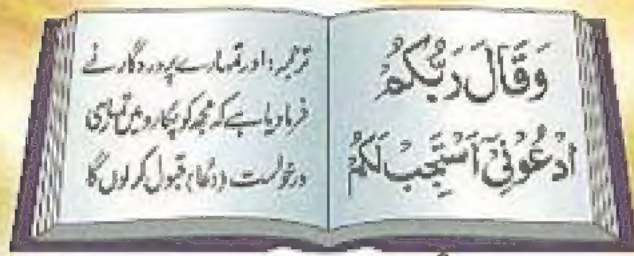 وَقَالَ رَبُّكُمُ
ادْعُوْنِيْٓ اَسْتَجِبْ لَكُمْ
ترجمہ: اور تمہارے پروردگار نے
فرمادیا ہے کہ مجھ کو پکارو میں تمہاری
درخواست (دعا) قبول کرلوں گا